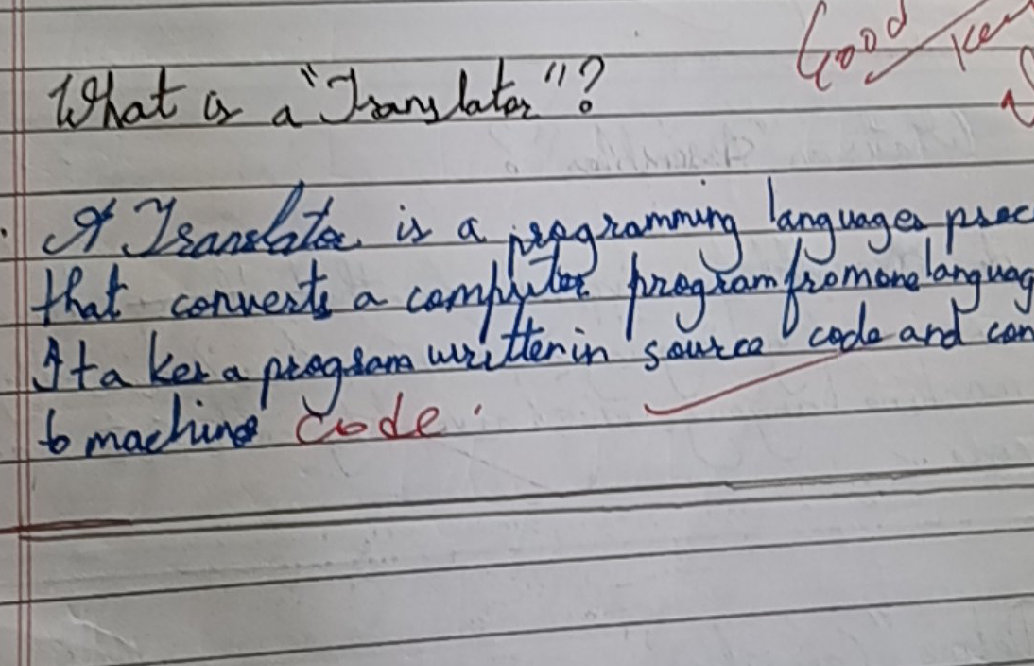 Good
What is a "Translator"?
A Translator is a programming languages proc
that converts a computer program from one languag
It takes a program written in source code and con
to machine code.